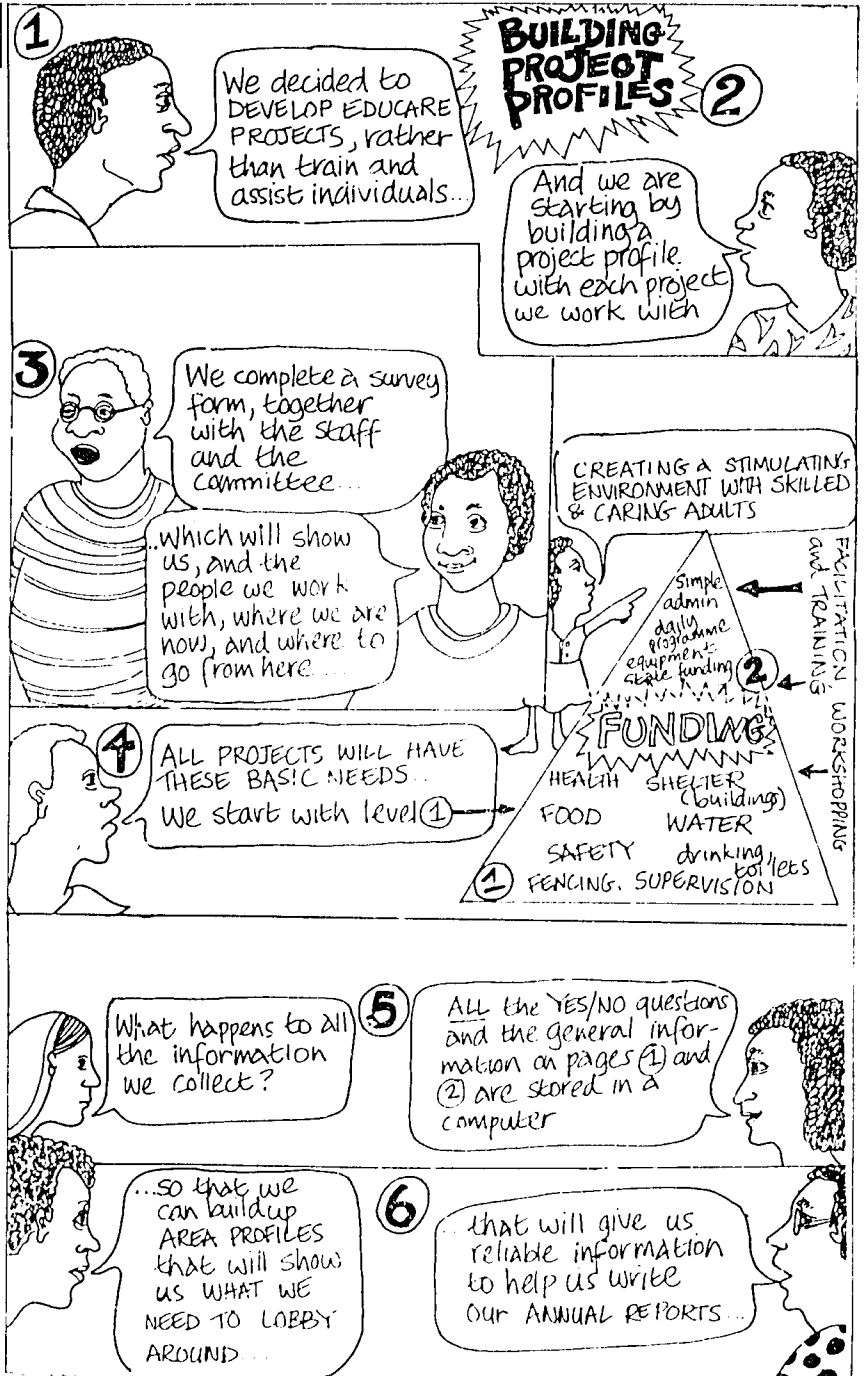 1
We decided to
DEVELOP EDUCARE
PROJECTS, rather
than train and
assist individuals...
BUILDING
PROJECT
PROFILES
2
And we are
starting by
building a
project profile
with each project
we work with
3
We complete a survey
form, together
with the staff
and the
committee...
...which will show
us, and the
people we work
with, where we are
now, and where to
go from here....
CREATING A STIMULATING
ENVIRONMENT WITH SKILLED
& CARING ADULTS
Simple
admin
daily
programme
equipment
stable funding
2
FUNDING
HEALTH SHELTER
(buildings)
FOOD WATER
SAFETY drinking,
toilets
1 FENCING. SUPERVISION
FACILITATION WORKSHOPPING
and TRAINING
4
ALL PROJECTS WILL HAVE
THESE BASIC NEEDS...
We start with level 1
What happens to all
the information
we collect?
5
ALL the YES/NO questions
and the general infor-
mation on pages 1 and
2 are stored in a
computer
...so that we
can build up
AREA PROFILES
that will show
us WHAT WE
NEED TO LOBBY
AROUND...
6
...that will give us
reliable information
to help us write
our ANNUAL REPORTS...